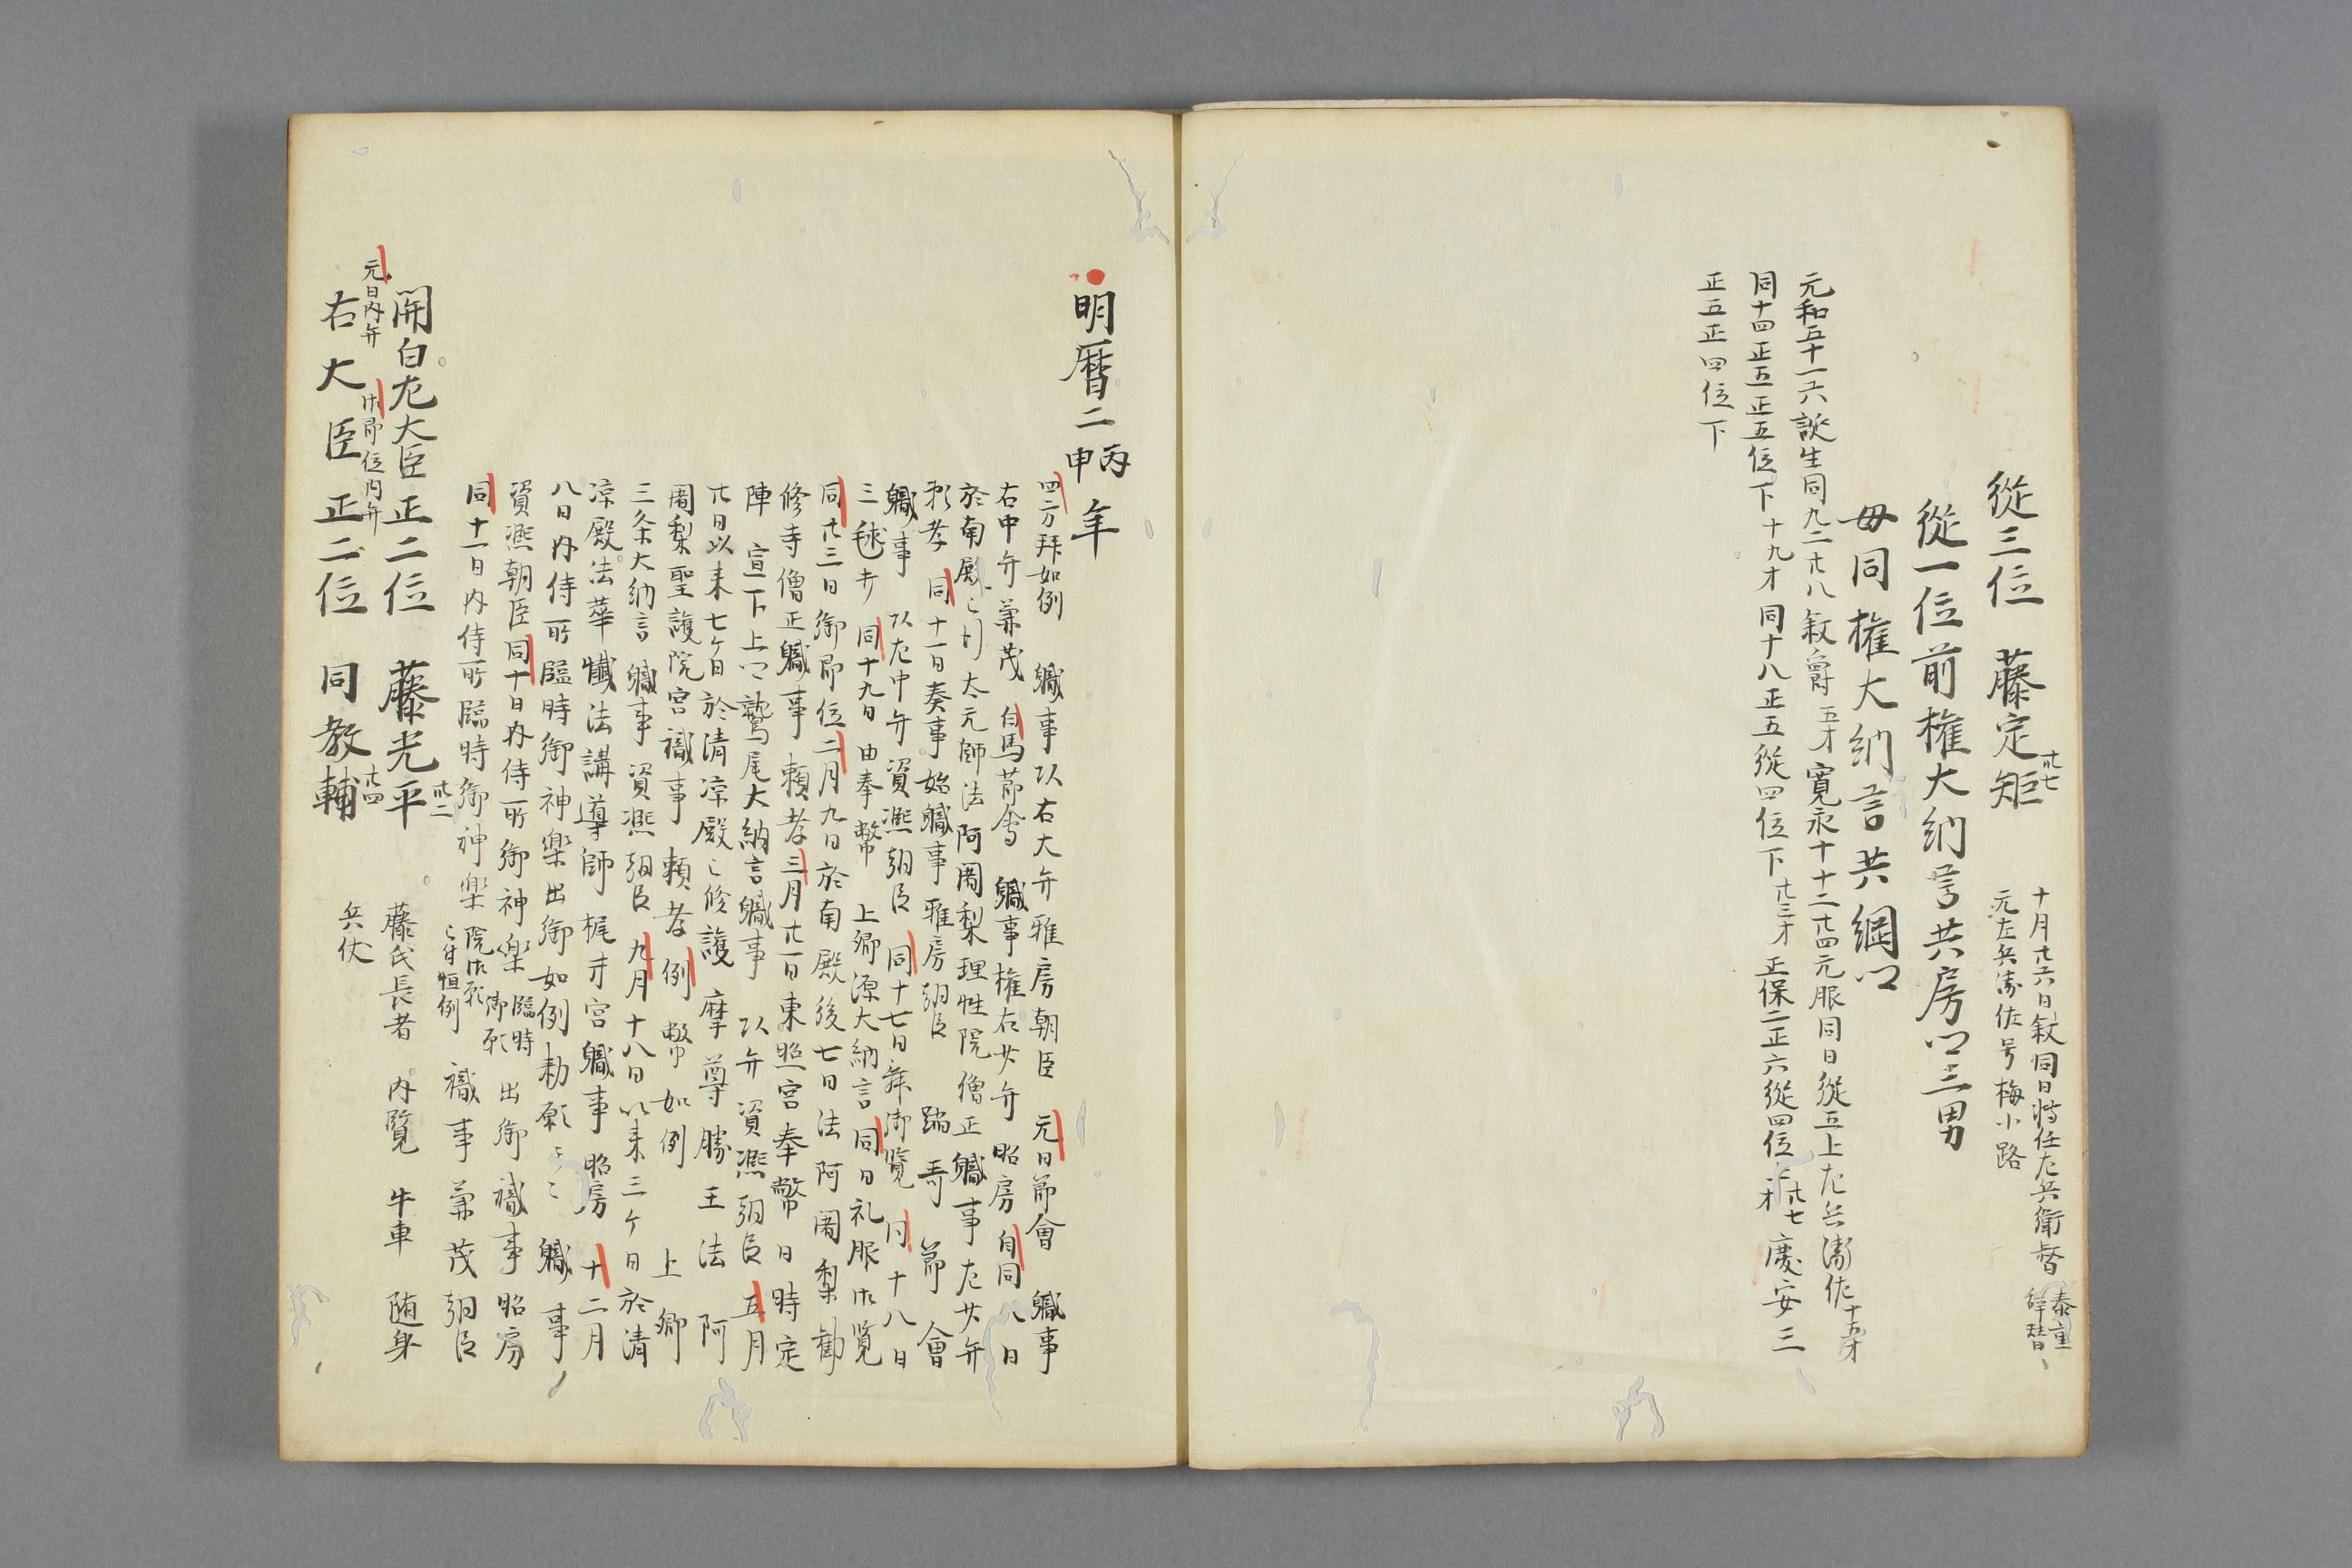 從三位 藤定矩 卅七 十月廿六日叙同日將任左兵衛督 泰重辞替
元左兵衛佐号梅小路
從一位前權大納言共房卿三男
母同權大納言共綱卿
元和五十一六誕生同九二廿八叙爵五才寛永十十二廿四元服同日從五上左兵衛佐十五才
同十四正五正五位下十九才同十八正五從四位下廿三才正保二正六從四位上廿七才慶安三
正五正四位下
明暦二丙申年
四方拝如例 職事以右大弁雅房朝臣 元日節會 職事
右中弁兼茂 白馬節會 職事權右少弁 昭房 自同八日
於南殿被行太元帥法阿闍梨理性院僧正職事左少弁
頼孝 同十一日奏事始職事雅房朝臣 踏哥節會
職事 以左中弁資凞朝臣 同十七日舞御覧 同十八日
三毬打 同十九日由奉幣 上卿源大納言同日礼服御覧
同廿三日御即位二月九日於南殿後七日法阿闍梨勧
修寺僧正職事頼孝三月廿一日東照宮奉幣日時定
陣 宣下上卿鷲尾大納言職事 以弁 資凞朝臣 五月
廿日以来七ケ日於清凉殿被修護摩尊勝王法 阿
闍梨聖護院宮職事 頼孝 例幣如例 上卿
三条大納言職事資凞朝臣 九月十八日以来三ケ日於清
凉殿法華懺法講導師梶井宮職事昭房 十二月
八日内侍所臨時御神楽出御如例勅願云々 職事
資凞朝臣同十日内侍所御神楽 臨時御願 出御職事昭房
同十一日内侍所臨時御神楽 院御願被付恒例 職事兼茂朝臣
關白左大臣正二位 藤光平 卅二 藤氏長者 内覧 牛車 随身
兵仗
元日内弁 御即位内弁
右大臣正二位 同教輔 廿四